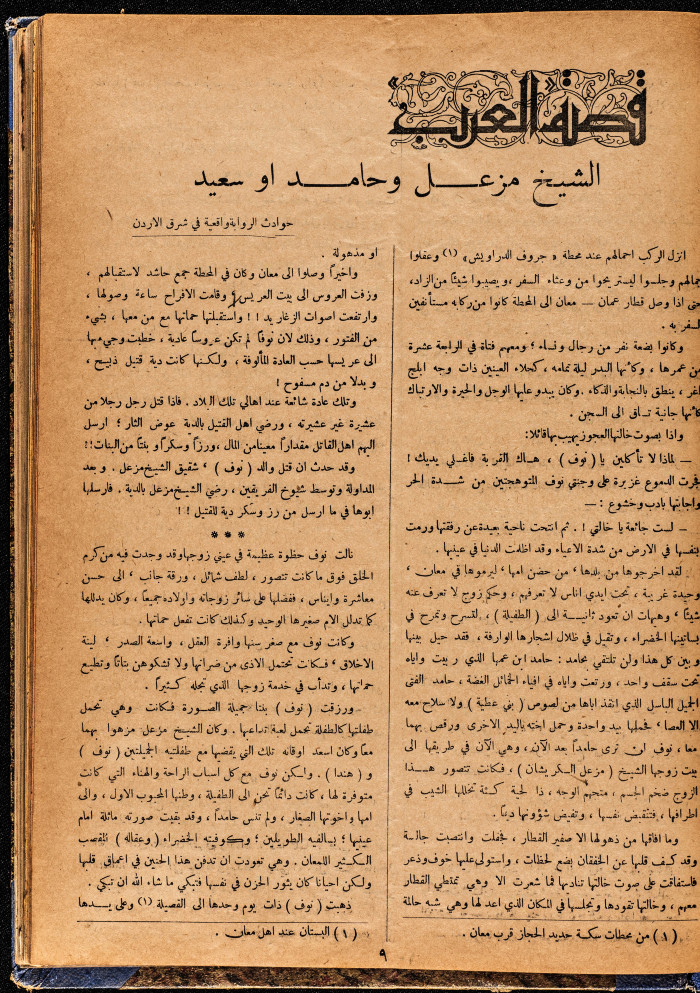 قصة العرب
الشيخ مزعل وحامد او سعيد
حوادث الرواية واقعية في شرق الاردن
انزل الركب احمالهم عند محطة « جروف الدراويش » (١) وعقلوا
جمالهم وجلسوا ليستريحوا من وعثاء السفر ، ويصيبوا شيئاً من الزاد،
حتى اذا وصل قطار عمان — معان الى المحطة كانوا من ركابه مستأنفين
السفر به .
وكانوا بضعة نفر من رجال ونساء ؛ ومعهم فتاة في الرابعة عشرة
من عمرها ، وكأنها البدر ليلة تمامه ، كحلاء العينين ذات وجه ابلج
اغر ، ينطق بالنجابة والذكاء . وكان يبدو عليها الوجل والحيرة والارتباك
كأنها جانية تساق الى السجن .
واذا بصوت خالتها العجوز يهيب بها قائلا :
— لماذا لا تأكلين يا ( نوف ) ، هاك القربة فاغسلي يديك !
فجرت الدموع غزيرة على وجنتي نوف المتوهجتين من شدة الحر
واجابتها بادب وخشوع : —
— لست جائعة يا خالتي ! . ثم انتحت ناحية بعيدة عن رفقتها ورمت
بنفسها في الارض من شدة الاعياء وقد اظلمت الدنيا في عينيها .
لقد اخرجوها من بلدها ' من حضن امها ' ليرموها في معان '
وحيدة غريبة ، تحت ايدي اناس لا تعرفهم ، وحكم زوج لا تعرف عنه
شيئاً ' وهيهات ان تعود ثانيسة الى ( الطفيلة ) ، لتسرح وتمرح في
بساتينها الخضراء ، وتقيل في ظلال اشجارها الوارفة ، فقد حيل بينها
وبين كل هذا ولن تلتقي بحامد : حامد ابن عمها الذي ربيت واياه
تحت سقف واحد ، ورتعت واياه في افياء الخمائل الغضة ، حامد الفتى
الجميل الباسل الذي انقذ اباها من لصوص ( بني عطية ) ولا سلاح معه
الا العصا ' فحملها بيد واحدة وحمل اخته باليد الاخرى ورقص بهما
معا ، نوف لن ترى حامداً بعد الآن، وهي الآن في طريقها الى
بيت زوجها الشيخ ( مزعل السكريشان ) ، فكانت تتصور هسذا
الزوج ضخم الجسم ، متجهم الوجه ، ذا لحية كثة تخللها الشيب في
اطرافها ، فتنقبض نفسها ، وتفيض شؤونها دمعاً .
وما افاقها من ذهولها الا صفير القطار ، فجفلت وانتصبت جالسة
وقد كيف قلبها عن الخفقان بضع لحظات ، واستولى عليها خوف وذعر
فاستفاقت على صوت خالتها تناديها فما شعرت الا وهي تمتطي القطار
معهم ، وخالتها تقودها وتجلسها في المكان الذي اعد لها وهي شبه حالمة
(١) من محطات سكة حديد الحجاز قرب معان .
او مذهولة .
واخيراً وصلوا الى معان وكان في المحطة جمع حاشد لاستقبالهم ،
وزفت العروس الى بيت العريس ؛ وقامت الافراح ساعة وصولها ،
وارتفعت اصوات الزغاريد ! ! واستقبلتها حماتها مع من معها ، بشيء
من الفتور ، وذلك لان نوفاً لم تكن عروساً عادية ، خطبت وجيء بها
الى عريسها حسب العادة المألوفة ، ولكنها كانت دية قتيل ذبيح ،
و بدلا من دم مسفوح !
وتلك عادة شائعة عند اهالي تلك البلاد . فاذا قتل رجل رجلا من
عشيرة غير عشيرته ، ورضي اهل القتيل بالدية عوض الثار ؛ ارسل
اليهم اهل القاتل مقداراً معينا من المال ، ورزاً وسكراً و بنتاً من البنات !!
وقد حدث ان قتل والد ( نوف ) ' شقيق الشيخ مزعل . و بعد
المداولة وتوسط شيوخ الفريقين ، رضي الشيخ مزعل بالدية . فارسلها
ابوها في ما ارسل من رز وسكر دية للقتيل ! !
* * *
نالت نوف حظوة عظيمة في عيني زوجها وقد وجدت فيه من كرم
الخلق فوق ما كانت تتصور ، لطف شمائل ، ورقة جانب ' الى حسن
معاشرة وايناس ، ففضلها على سائر زوجاته واولاده جميعاً ، وكان يدللها
كما تدلل الام صغيرها الوحيد وكذلك كانت تفعل حماتها .
وكانت نوف مع صغر سنها وافرة العقل ، واسعة الصدر ' لينة
الاخلاق ' فكانت تحتمل الاذى من ضراتها ولا تشكوهن بتاتاً وتطيع
حماتها ، وتدأب في خدمة زوجها الذي تجله كثيراً .
ورزقت ( نوف ) بنتا جميلة الصورة فكانت وهي تحمل
طفلتها كالطفلة تحمل لعبة تداعبها . وكان الشيخ مزعل مزهوا بهما
معاً وكان اسعد اوقاته تلك التي يقضيها مع طفلتيه الجميلتين ( نوف )
و ( هندا ) . ولكن نوف مع كل اسباب الراحة والهناء التي كانت
متوفرة لها ، كانت دائماً تحن الى الطفيلة ، وطنها المحبوب الاول ، والى
امها واخوتها الصغار ، ولم تنس حامداً ، وقد بقيت صورته ماثلة امام
عينيها ؛ بسالفيه الطويلين ؛ وكوفيته الخضراء ( وعقاله ) المقصب
الكثير اللمعان . وهي تعودت ان تدفن هذا الحنين في اعماق قلبها
ولكن احيانا كان يثور الحزن في نفسها فتبكي ما شاء الله ان تبكي .
ذهبت ( نوف ) ذات يوم وحدها الى الفصيلة (١) وعلى يسدها
(١) البستان عند اهل معان .
٩